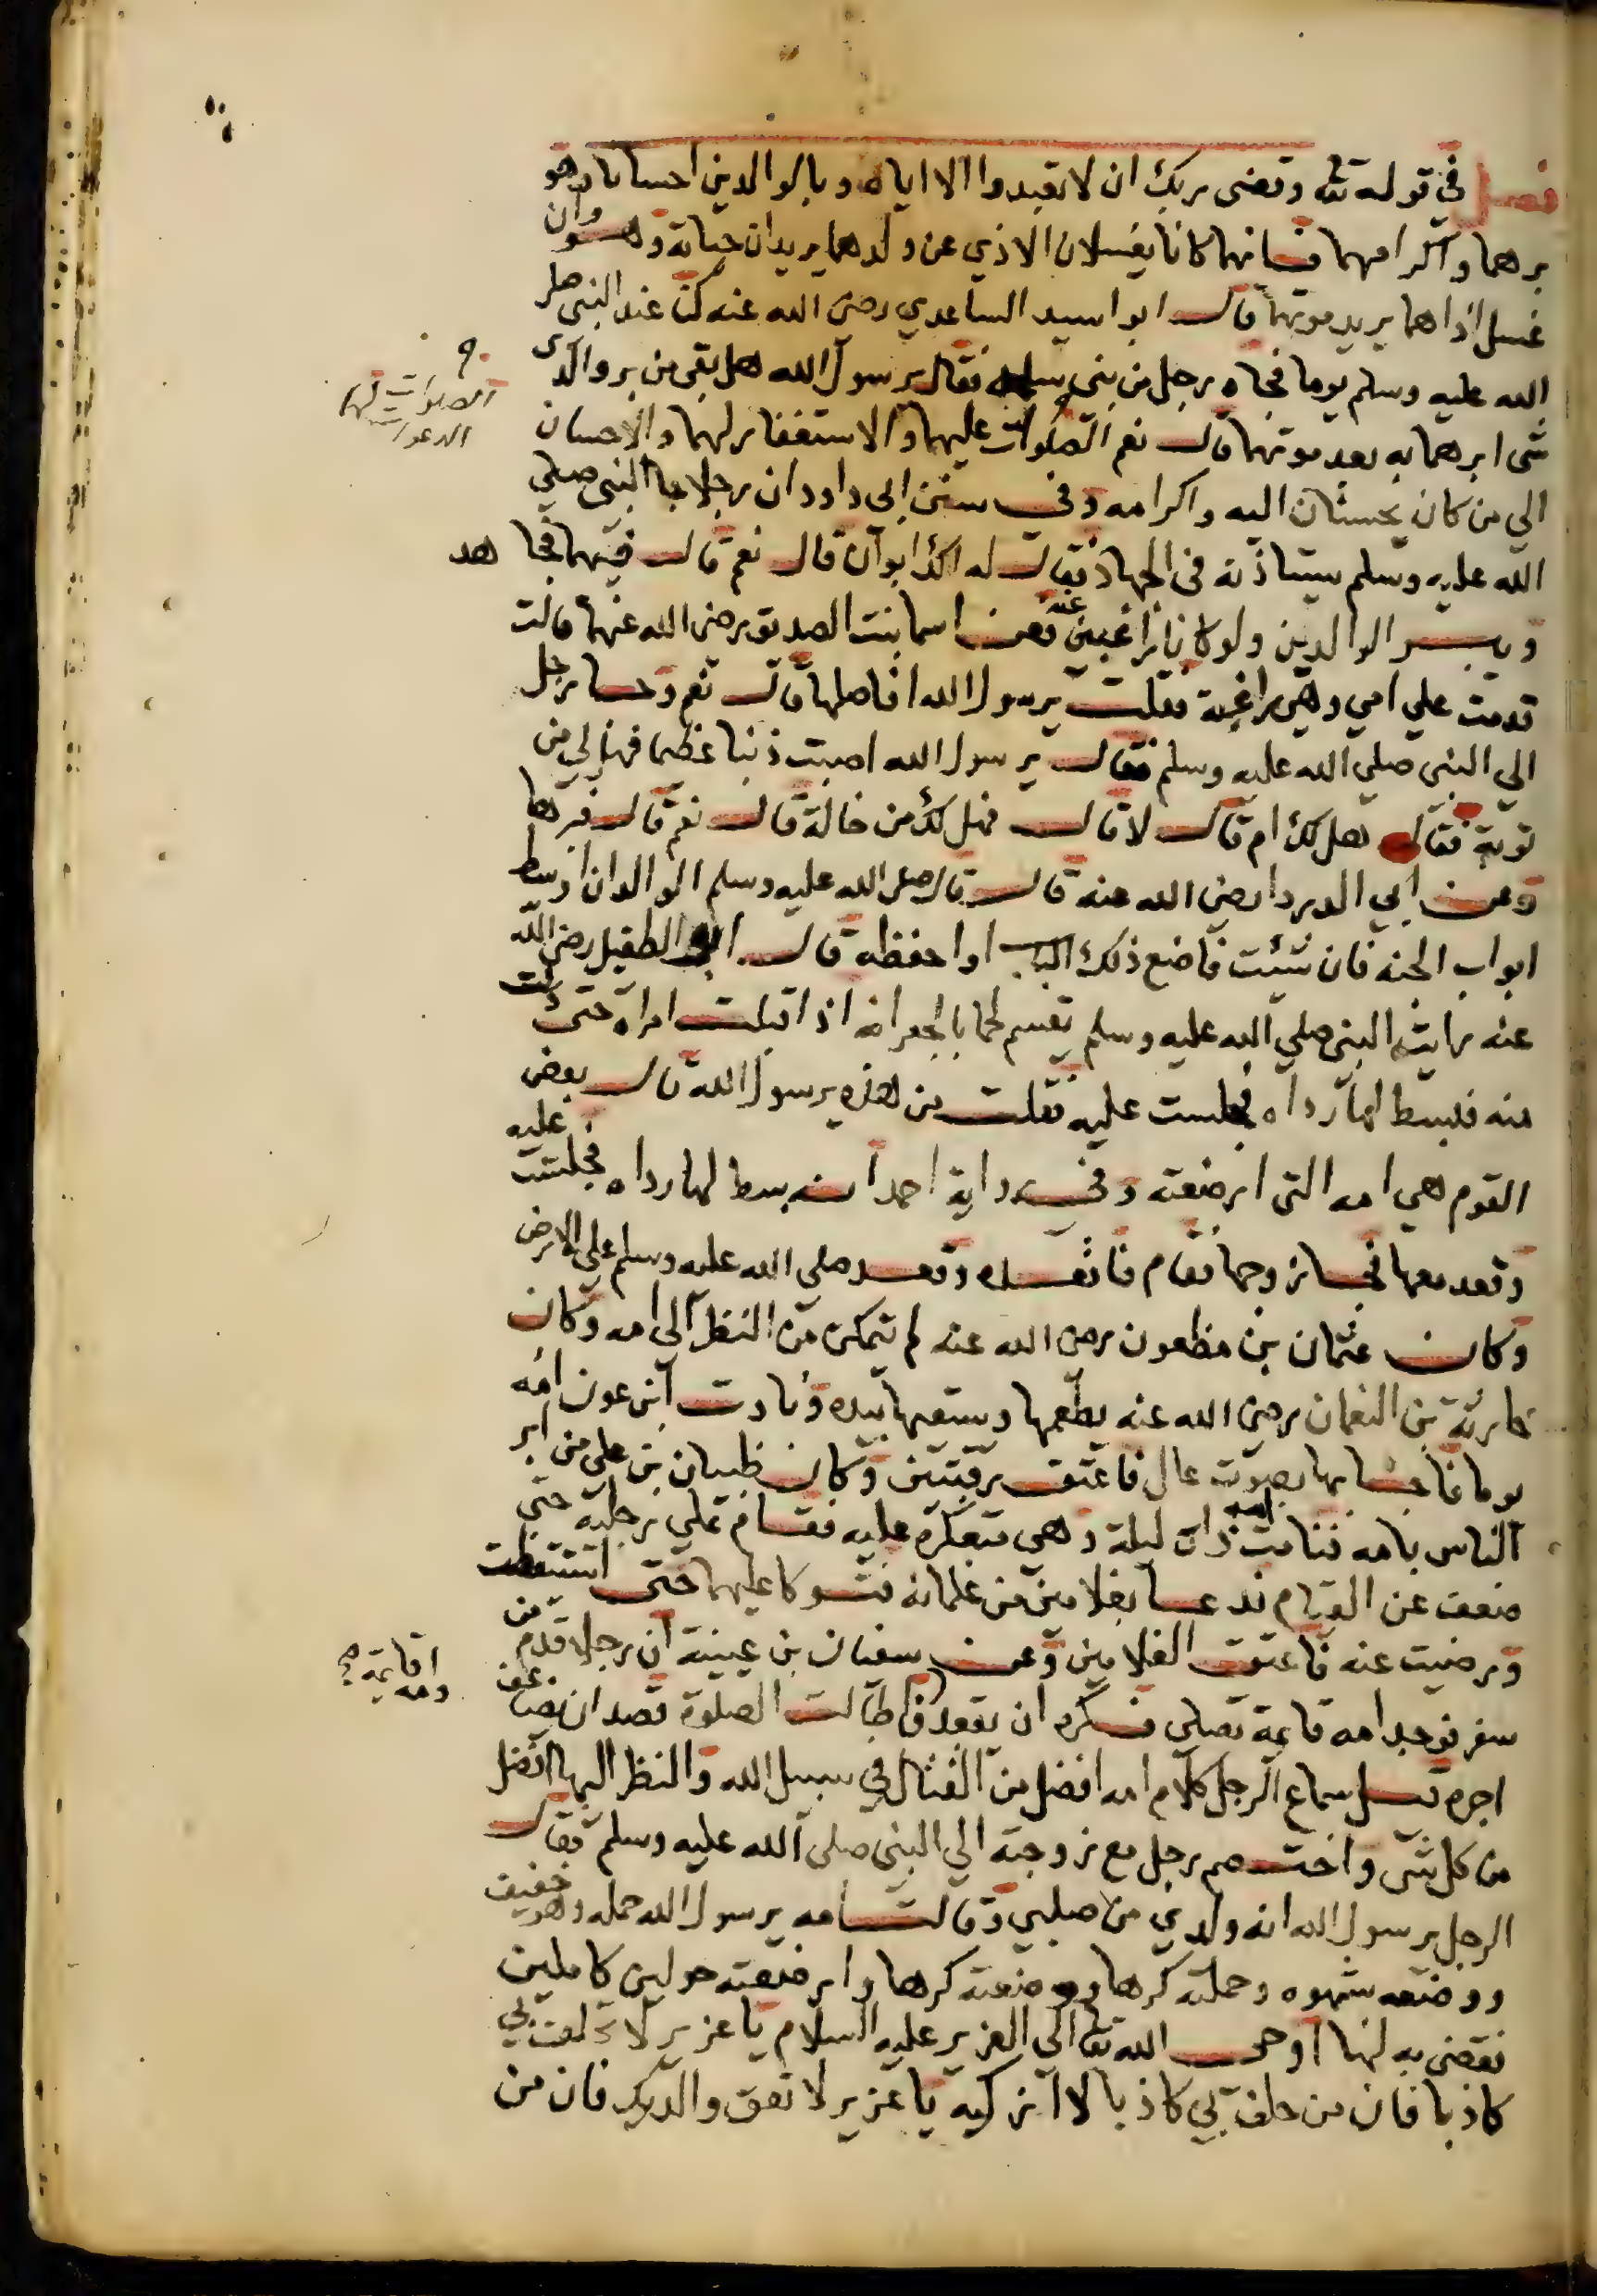 فصل في قوله تعالى وقضى ربك ان لا تعبدوا الا اياه وبالوالدين احسانا وهو
برهما واكرامهما فانهما كانا يغسلان الاذي عن ولدهما يريدان حياته وهو وان
غسل اذاهما يريد موتهما قال ابو اسيد الساعدي رضى الله عنه كنت عند النبي صلى
الله عليه وسلم يوما فجاه رجل من بني سلمه فقال يرسول الله هل بقي من بر والدى
شى ابرهما به بعد موتهما قال نعم الصلوات عليهما والاستغفار لهما والاحسان
الصلوات لهما
الدعوات
الي من كان يحسنان اليه واكرامه وفي سنن ابى داود ان رجلا جا النبي صلي
الله عليه وسلم يستاذنه في الجهاد فقال له الك ابوان قال نعم قال ففيهما فجاهد
ويبر الوالدين ولو كانا راغبين عنه فعن اسما بنت الصديق رضى الله عنهما قالت
قدمت علي امي وهي راغبة فقلت يرسول الله افاصلها قال نعم وجا رجل
الي النبي صلي الله عليه وسلم فقال يرسول الله اصبت ذنبا عظيما فهل لي من
توبة فقال هل لك ام قال لا قال فهل لك من خالة قال نعم قال فبرها
وعن ابي الدردا رضي الله عنه قال قال صلى الله عليه وسلم الوالدان اوسط
ابواب الجنه فان شئت فاضع ذلك الباب او احفظه قال ابو الطفيل رضى الله
عنه رايت النبي صلي الله عليه وسلم يقسم لحما بالجعرانه اذ اقبلت امراه حتى دنت
منه فبسط لها رداه فجلست عليه فقلت من هذه يرسول الله قال بعض
القوم هي امه التي ارضعته وفي رواية احد انه بسط لها رداه فجلست عليه
وقعد معها فجا زوجها فقام فاقعده وقعد صلى الله عليه وسلم على الارض
وكان عثمان بن مظعون رضى الله عنه لم يتمكن من النظر الى امه وكان
حارثة بن النعمان رضى الله عنه يطعمها ويسقيها بيده ونادت ابن عون امه
يوما فاجابها بصوت عال فاعتق رقبتين وكان ظبيان بن على من ابر
الناس بامه فنامت امه ذات ليلة وهي متعكره عليه فقام علي رجليه حتى
ضعف عن القيام فدعا بغلامين من غلمانه فتوكا عليهما حتى استيقظت
ورضيت عنه فاعتق الغلامين وعن سفيان بن عيينة ان رجلا قدم من
سفر فوجد امه قايمة تصلى فكره ان يقعد فاطالت الصلوة قصد ان يضاعف
وامه قايمة
اجره قيل سماع الرجل كلام امه افضل من القتال في سبيل الله والنظر اليها افضل
من كل شى واختصم رجل مع زوجته الي النبي صلى الله عليه وسلم فقال
الرجل يرسول الله انه ولدي من صلبي وقالت امه يرسول الله حمله وهو خفيف
ووضعه شهوه وحملته كرها ووضعته كرها وارضعته حولين كاملين
فقضى به لها اوحى الله تعالى الي العزير عليه السلام يا عزير لا تحلف بي
كاذبا فان من حلف بي كاذبا لا ازكيه يا عزير لا تعق والديك فان من